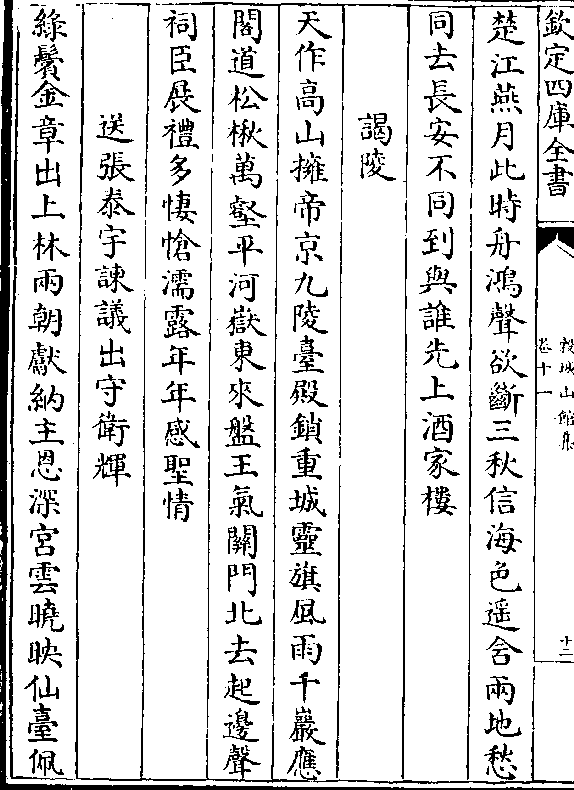 欽定四庫全書
穀城山館集
卷十一
十二
楚江燕月此時舟鴻聲欲斷三秋信海色遥含兩地愁
同去長安不同到與誰先上酒家樓
謁陵
天作高山擁帝京九陵臺殿鎖重城靈旗風雨千巖應
閣道松楸萬壑平河嶽東來盤王氣關門北去起邊聲
祠臣展禮多悽愴濡露年年感聖情
送張泰宇諫議出守衛輝
綠鬢金章出上林兩朝獻納主恩深宮雲曉映仙臺佩